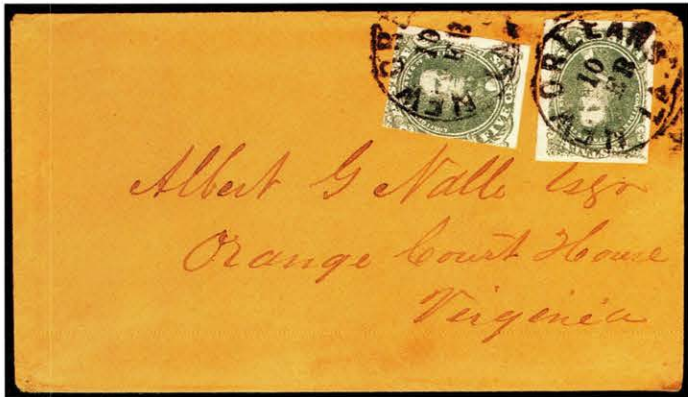 NEW ORLEANS LA.
10
NEW ORLEANS LA.
10
FIVE CENTS
Albert G Nalle Esqr
Orange Court House
Virginia